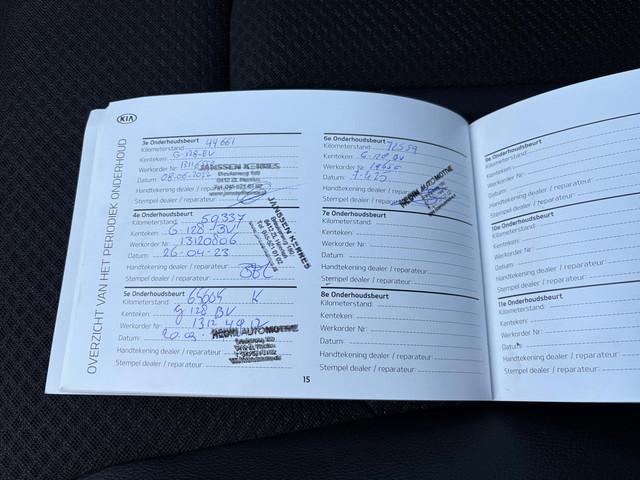 KIA
OVERZICHT VAN HET PERIODIEK ONDERHOUD
3e Onderhoudsbeurt
Kilometerstand: 44661
Kenteken: G-128-BV
Werkorder Nr:
Datum: 08-06-2022
Handtekening dealer / reparateur:
Stempel dealer / reparateur:
JANSSEN KERRES
4e Onderhoudsbeurt
Kilometerstand: 59337
Kenteken: G-128-BV
Werkorder Nr: 13120806
Datum: 26-04-23
Handtekening dealer / reparateur:
Stempel dealer / reparateur:
JANSSEN KERRES
Tel. 045-521 01 02
5e Onderhoudsbeurt
Kilometerstand: K
Kenteken: G 128 BV
Werkorder Nr:
Datum:
AUTOMOTIVE
Handtekening dealer / reparateur:
Stempel dealer / reparateur:
15
6e Onderhoudsbeurt
Kilometerstand: 72559
Kenteken: G-128-BV
Werkorder Nr:
Datum:
AUTOMOTIVE
Handtekening dealer / reparateur:
Stempel dealer / reparateur:
7e Onderhoudsbeurt
Kilometerstand:
Kenteken:
Werkorder Nr:
Datum:
Handtekening dealer / reparateur:
Stempel dealer / reparateur:
8e Onderhoudsbeurt
Kilometerstand:
Kenteken:
Werkorder Nr:
Datum:
Handtekening dealer / reparateur:
Stempel dealer / reparateur:
9e Onderhoudsbeurt
Kilometerstand:
Kenteken:
Werkorder Nr:
Datum:
Handtekening dealer / reparateur:
Stempel dealer / reparateur:
10e Onderhoudsbeurt
Kilometerstand:
Kenteken:
Werkorder Nr:
Datum:
Handtekening dealer / reparateur:
Stempel dealer / reparateur:
11e Onderhoudsbeurt
Kilometerstand:
Kenteken:
Werkorder Nr:
Datum:
Handtekening dealer / reparateur:
Stempel dealer / reparateur: